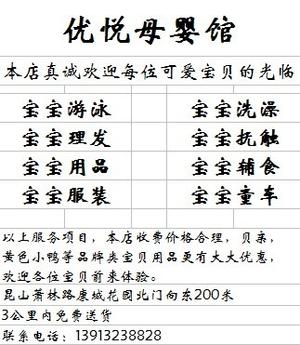 优悦母婴馆
本店真诚欢迎每位可爱宝贝的光临
宝宝游泳 宝宝洗澡
宝宝理发 宝宝抚触
宝宝用品 宝宝辅食
宝宝服装 宝宝童车
以上服务项目，本店收费价格合理，贝亲，
黄色小鸭等品牌类宝贝用品更有大大优惠，
欢迎各位宝贝前来体验。
昆山萧林路康城花园北门向东200米
3公里内免费送货
联系电话：13913238828